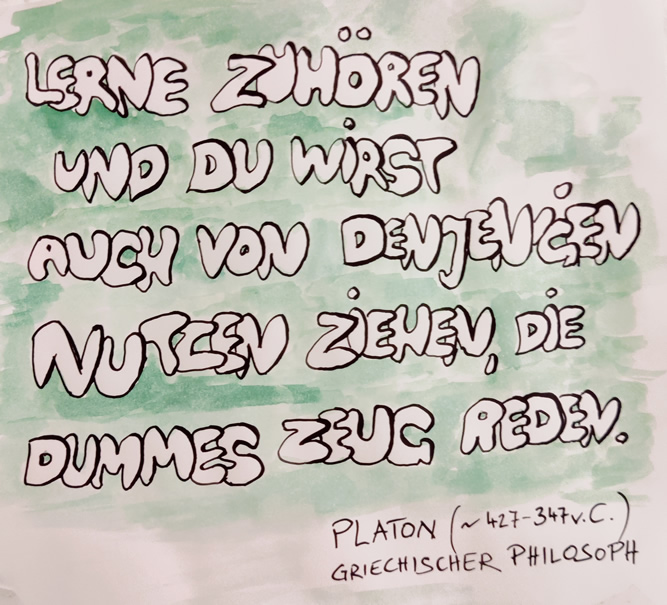 LERNE ZUHÖREN
UND DU WIRST
AUCH VON DENJENIGEN
NUTZEN ZIEHEN, DIE
DUMMES ZEUG REDEN.
PLATON (~427-347v.C.)
GRIECHISCHER PHILOSOPH